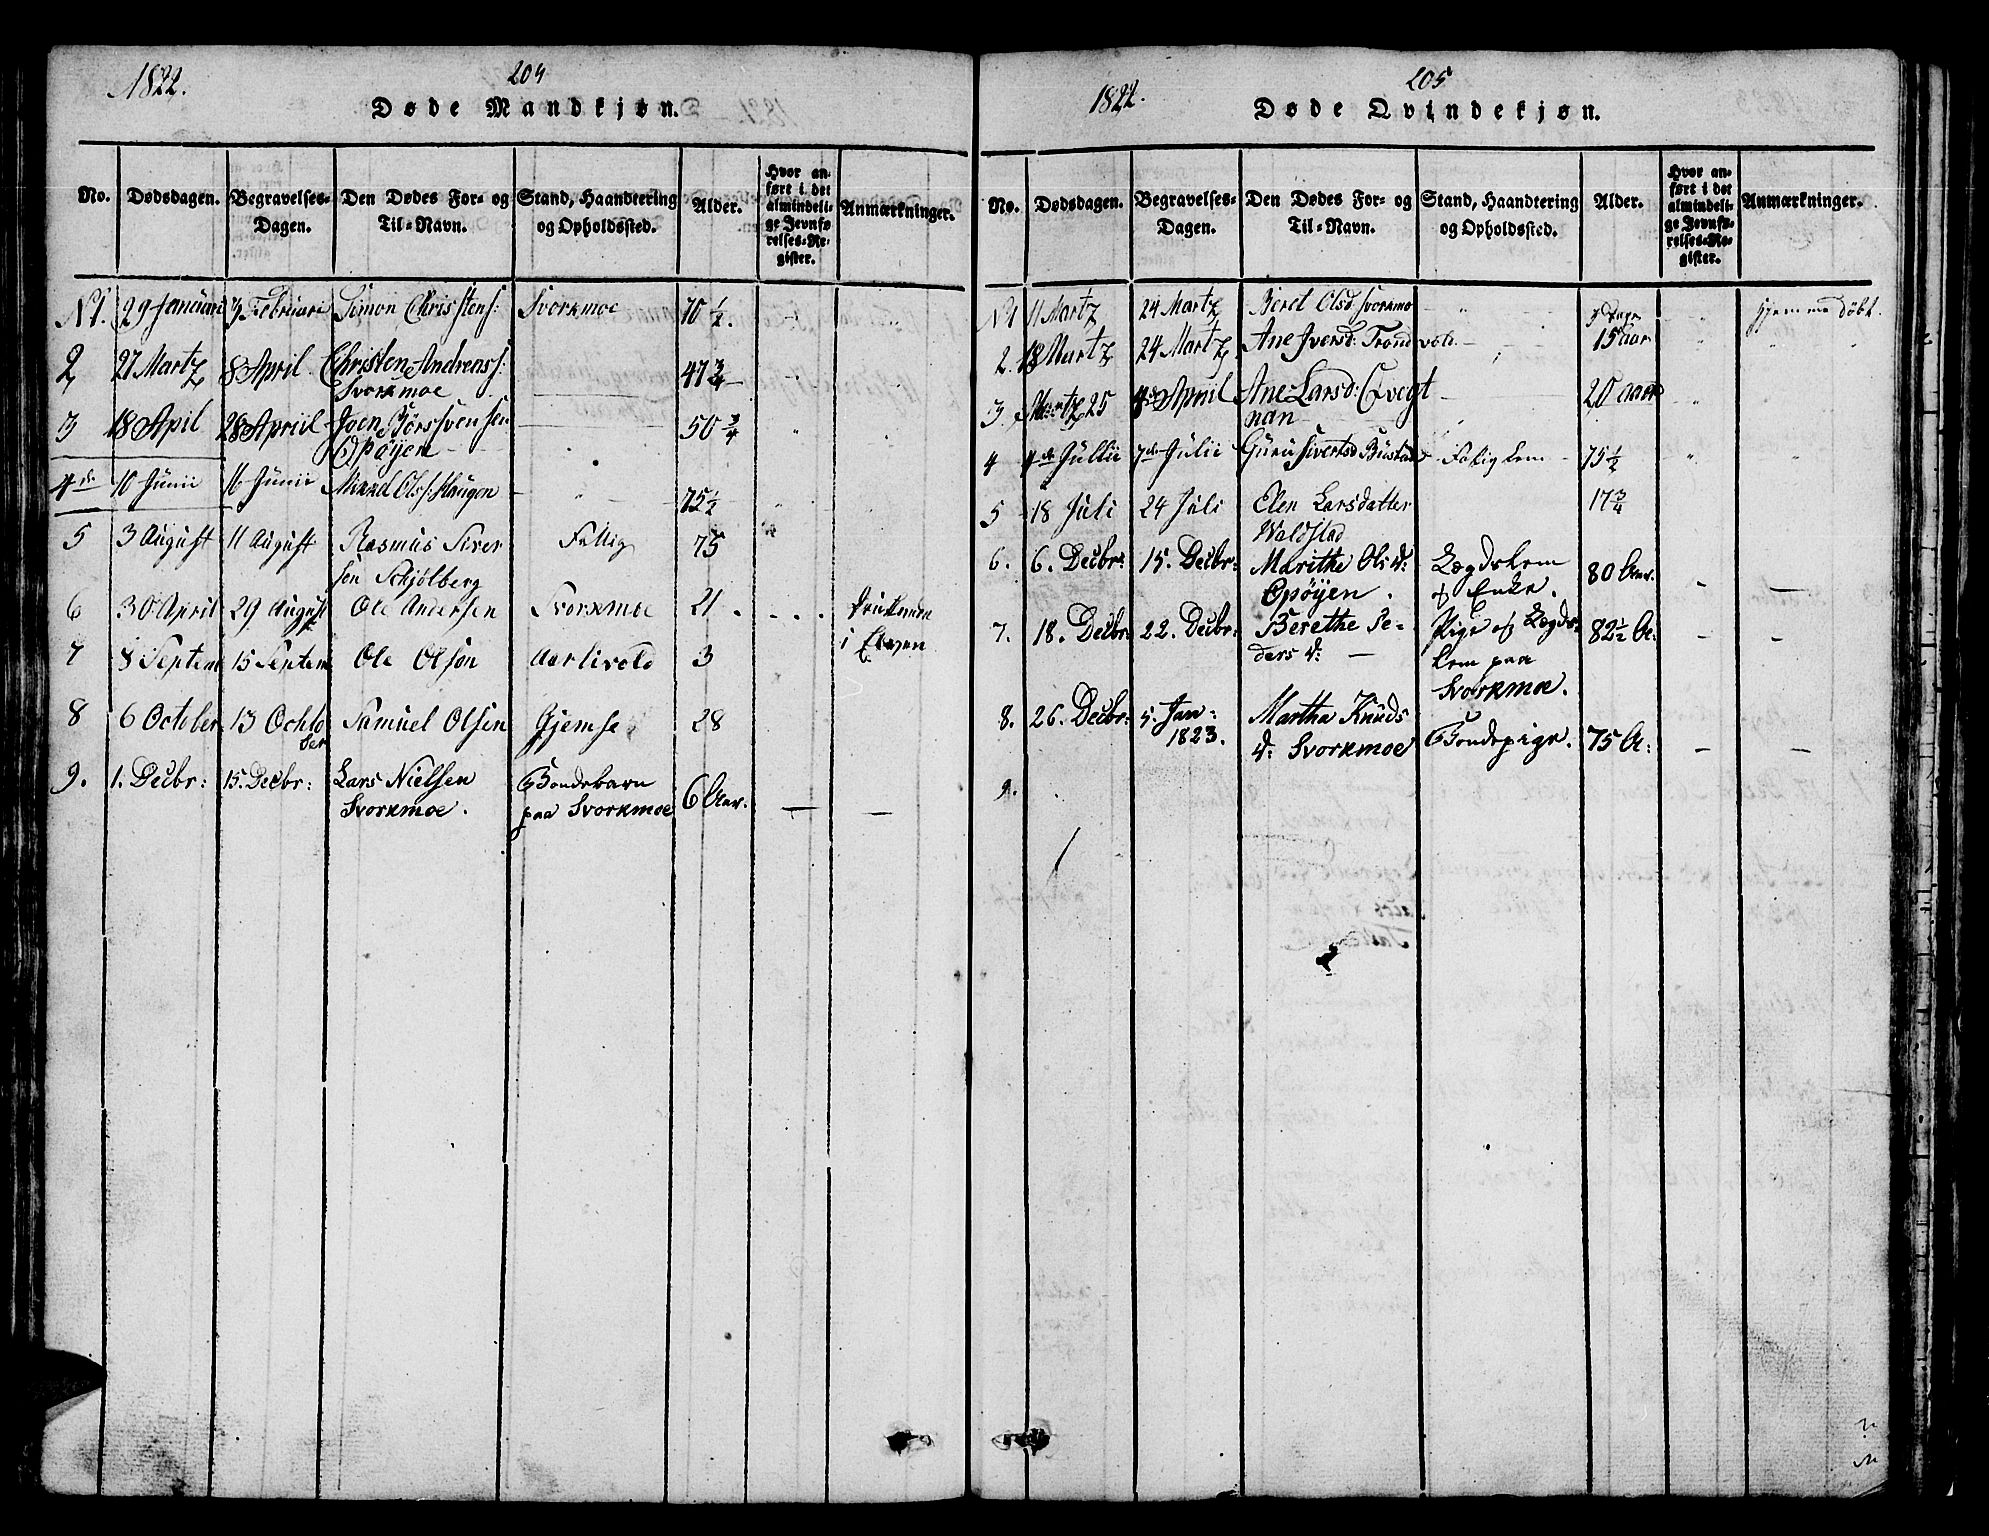 1822.
204
Døde Mandkjøn.
No. Dødsdagen. Begravelses-Dagen. Den Dødes For- og Til-Navn. Stand, Haandtering og Opholdssted. Alder. Hvor anført i det almindelige Jevnførelses-Register. Anmærkninger.
N1. 29 Januari 3 Februari Simon Christens: Svorkmoe 70 1/2.
2 27 Martz 8 April Christen Andreass:
Svorkmoe 47 3/4
3 18 April 28 Apriil Joen
Opøyen 50 3/4
4de 10 Junii 16 Junii Mikkel Olss: Haugen 75 1/2
5 3 August 11 August Rasmus Siver
sen Schjølberg Fattig 75
6 30 April 29 August Ole Andersen Svorkmoe 21
i Elven
7 8 Septem 15 Septem Ole Olsøn Aarlivold 3
8 6 October 13 Octto
ber Samuel Olsen Gjemse 28
9. 1. Decbr: 15. Decbr: Lars Nielsen Bondebarn
Svorkmoe. paa Svorkmoe 6 Aar. — —
1822.
205
Døde Qvindekjøn.
No. Dødsdagen. Begravelses-Dagen. Den Dødes For- og Til-Navn. Stand, Haandtering og Opholdssted. Alder. Hvor anført i det almindelige Jevnførelses-Register. Anmærkninger.
N1 11 Martz 24 Martz Beret Olsd Svorkmo Dage hjemme døbt.
2. 18 Martz 24 Martz Ane Iversd: Trondvold 15 Aar
3. Martz 25 Apriil Ane Larsd:
nan 20 aar
4 4de Jullii 7de Julii Guru Sivertsd Bustad Fattig Lem 75 1/2
5 18 Juli 24 Juli Elen Larsdatter
Waldstad 17 3/4
6. 6. Decbr: 15. Decbr: Marithe Ols d: Lægdslem
Opøyen. og Enke. 80 Aar. — —
7. 18. Decbr: 22. Decbr: Berethe Pe- Pige og Lægds- 82 1/2 A: — —
ders d: — lem paa
Svorkmoe.
8. 26. Decbr: 5. Jan: Martha Knuds
1823. d: Svorkmoe Bondepige. 75 A: — —
9.